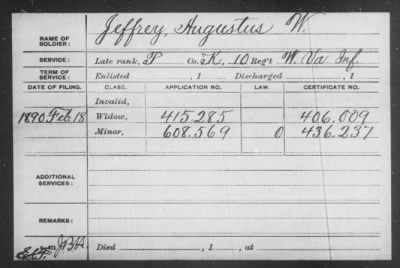 NAME OF SOLDIER: Jeffrey, Augustus W.
SERVICE: Late rank, P Co. K, 10 Reg't W. Va Inf.
TERM OF SERVICE: Enlisted , 1 Discharged , 1
DATE OF FILING. CLASS. APPLICATION NO. LAW. CERTIFICATE NO.
Invalid,
1890, Feb. 18 Widow, 415.285 406.009
Minor, 608.569 0 436.237
ADDITIONAL SERVICES:
REMARKS:
Died , 1 , at